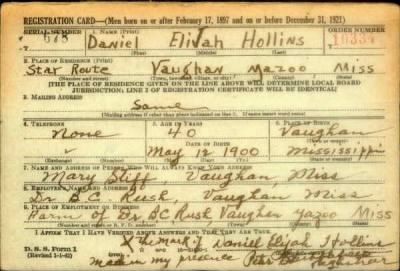 REGISTRATION CARD—(Men born on or after February 17, 1897 and on or before December 31, 1921)
SERIAL NUMBER 1. NAME (Print) ORDER NUMBER
Daniel Elijah Hollins
(First) (Middle) (Last)
2. PLACE OF RESIDENCE (Print)
Star Route Vaughan Yazoo Miss
(Number and street) (Town, township, village, or city) (County) (State)
[THE PLACE OF RESIDENCE GIVEN ON THE LINE ABOVE WILL DETERMINE LOCAL BOARD
JURISDICTION; LINE 2 OF REGISTRATION CERTIFICATE WILL BE IDENTICAL]
3. MAILING ADDRESS
Same
[Mailing address if other than place indicated on line 2. If same insert word same]
4. TELEPHONE 5. AGE IN YEARS 6. PLACE OF BIRTH
None 40 Vaughan
DATE OF BIRTH
May 12 1900 Mississippi
7. NAME AND ADDRESS OF PERSON WHO WILL ALWAYS KNOW YOUR ADDRESS
Mary Vaughan, Miss
8. EMPLOYER'S NAME AND ADDRESS
Dr B.C. Rush, Vaughan Miss
9. PLACE OF EMPLOYMENT OR BUSINESS
Farm of Dr. B.C Rush Vaughan Yazoo Miss
(Number and street or R. F. D. number) (Town) (County) (State)
I AFFIRM THAT I HAVE VERIFIED ABOVE ANSWERS AND THAT THEY ARE TRUE.
D. S. S. Form 1 X the mark of Daniel Elijah Hollins
(Revised 1-1-42)
made in my presence